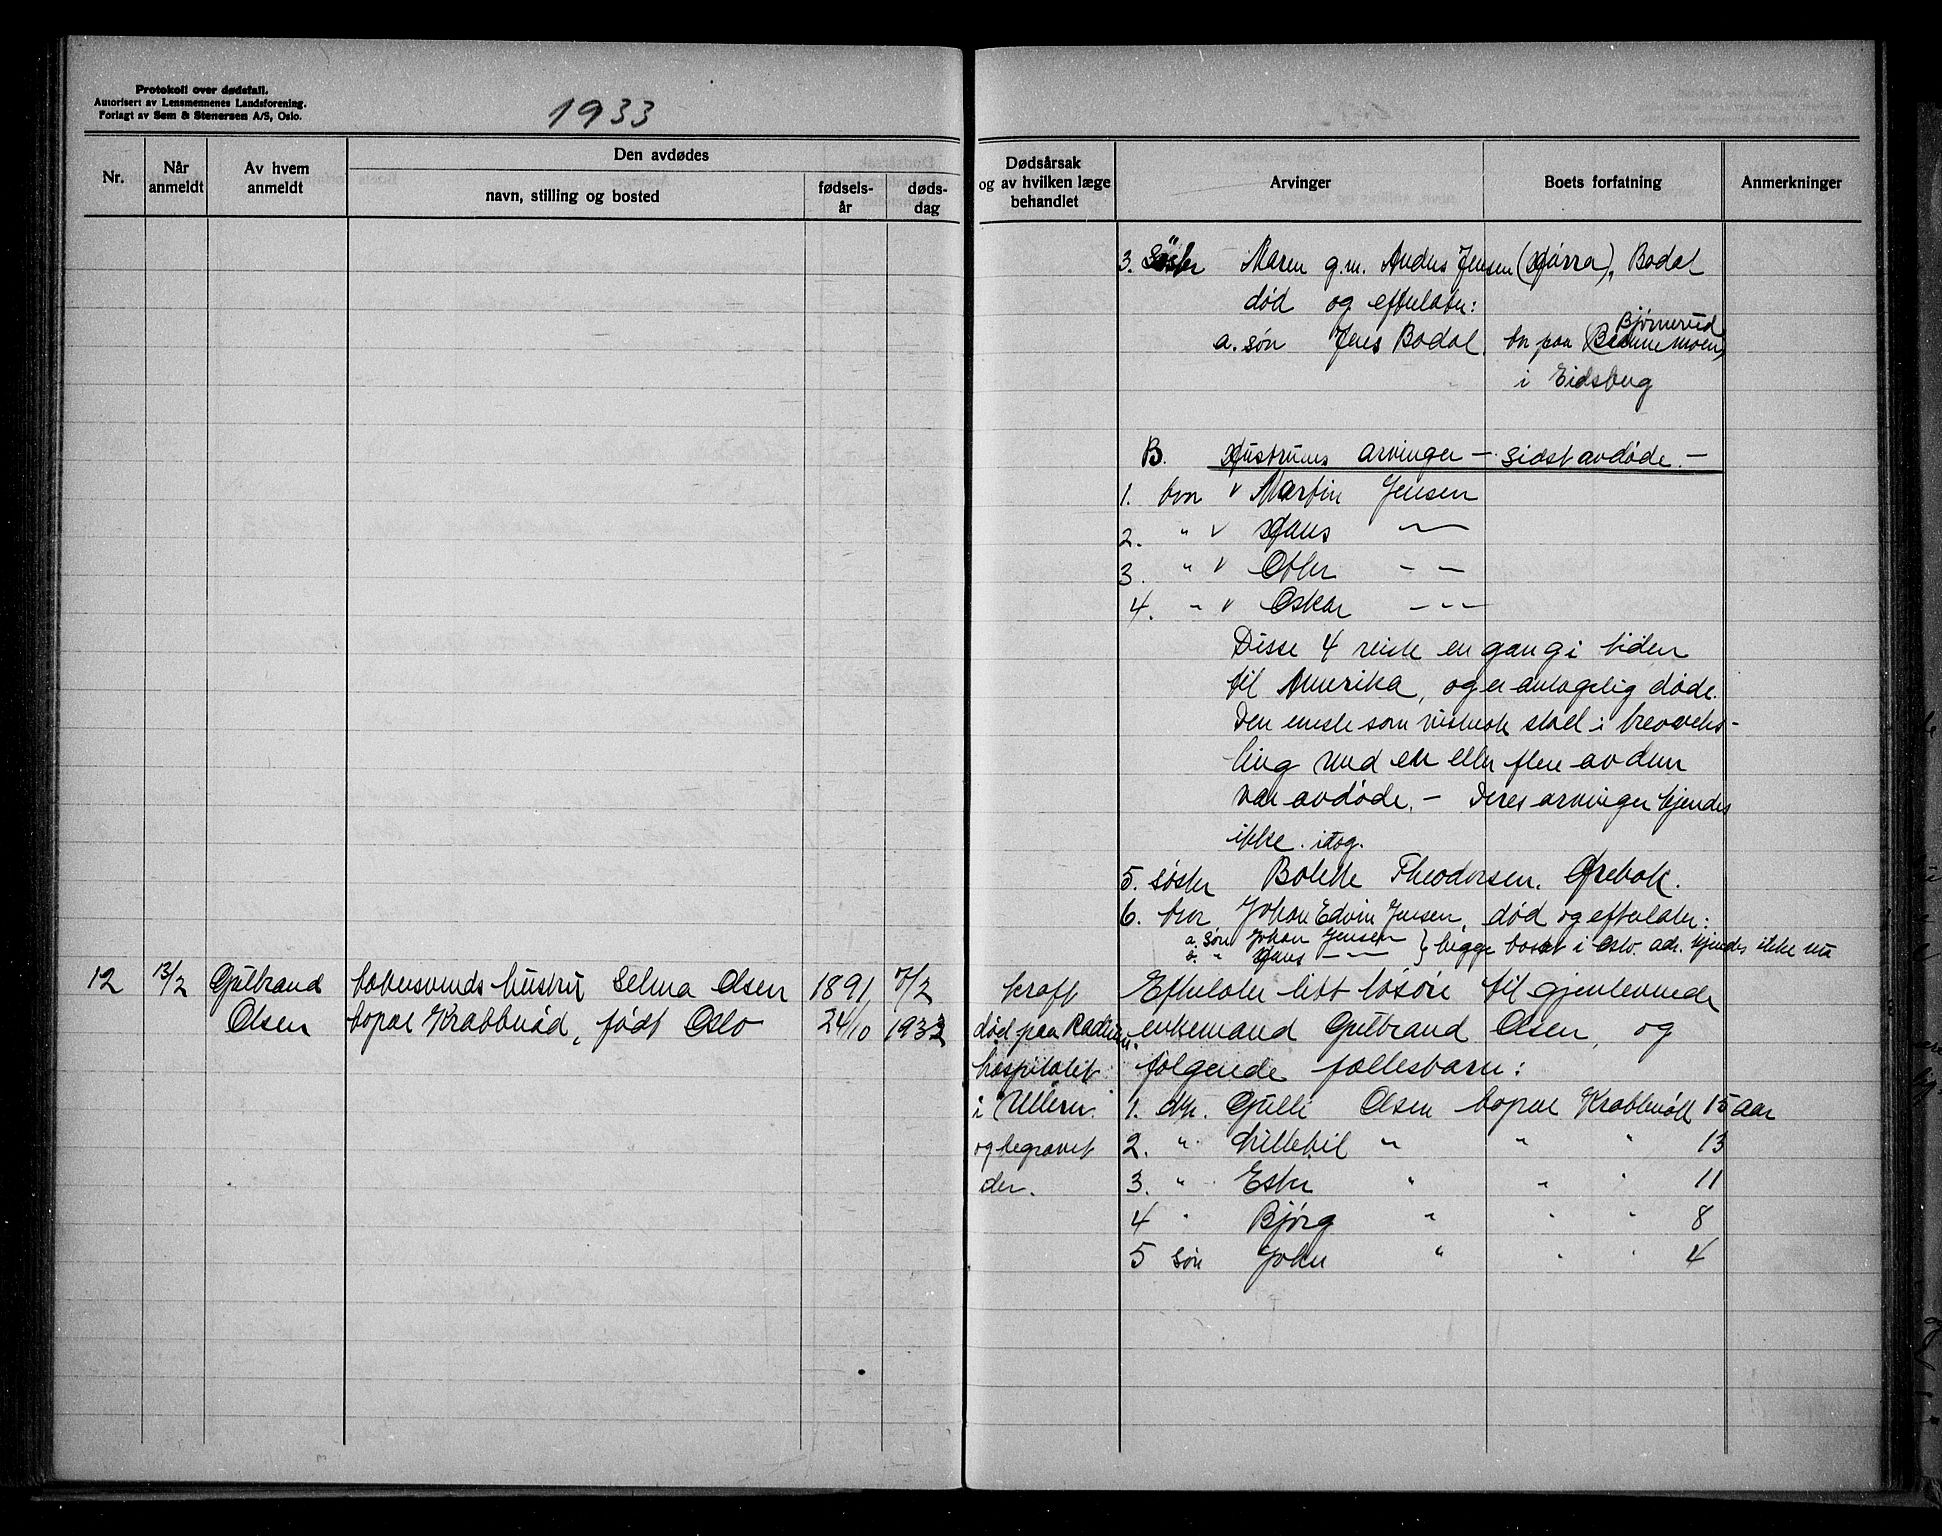 Protokoll over dødsfall.
Autorisert av Lensmennenes Landsforening.
Forlagt av Sem & Stenersen A/S, Oslo.
1933
Nr.
Når anmeldt
Av hvem anmeldt
Den avdødes
navn, stilling og bosted
fødsels-år
døds-dag
Dødsårsak og av hvilken læge behandlet
Arvinger
Boets forfatning
Anmerkninger
3. Søster Maren g.m. Anders Jensen (Hørra), Bodal
død og efterlater:
Bjørnerud
a. søn Jens Bodal bor paa
i Eidsberg
B. Hustruens arvinger – sidst avdøde. –
1. bror v Martin Jensen
2. " v Hans —
3. " v Otter — —
4. " v Oskar — — —
Disse 4 reiste en gang i tiden
til Amerika, og er antagelig døde.
Den eneste som visstnok stod i brevveks-
ling med en eller flere av dem
var avdøde. – Deres arvinger kjendes
ikke idag.
5. søster Bolette Theodorsen. Ørebæk.
6. bror Johan Edvin Jensen, død og efterlater:
a. søn Johan Jensen } begge bosat i Oslo. adr. kjendes ikke nu
b. " Hans — —
12 13/2 Gulbrand Olsen
tobersvends hustru Selma Olsen 1891 7/2
bopæl Krabberød, født Oslo 24/10 1933
kraft
død paa Radium-
hospitalet
i Ullern
og begravet
der.
Efterlater litt løsøre til gjenlevende
enkemand Gulbrand Olsen, og
følgende fællesbarn:
1. dtr. Gulli Olsen bopæl Krabberød 15 aar
2. " Lillebil " " " 13
3. " Ester " " " 11
4 " Bjørg " " " 8
5 søn John " " " 4